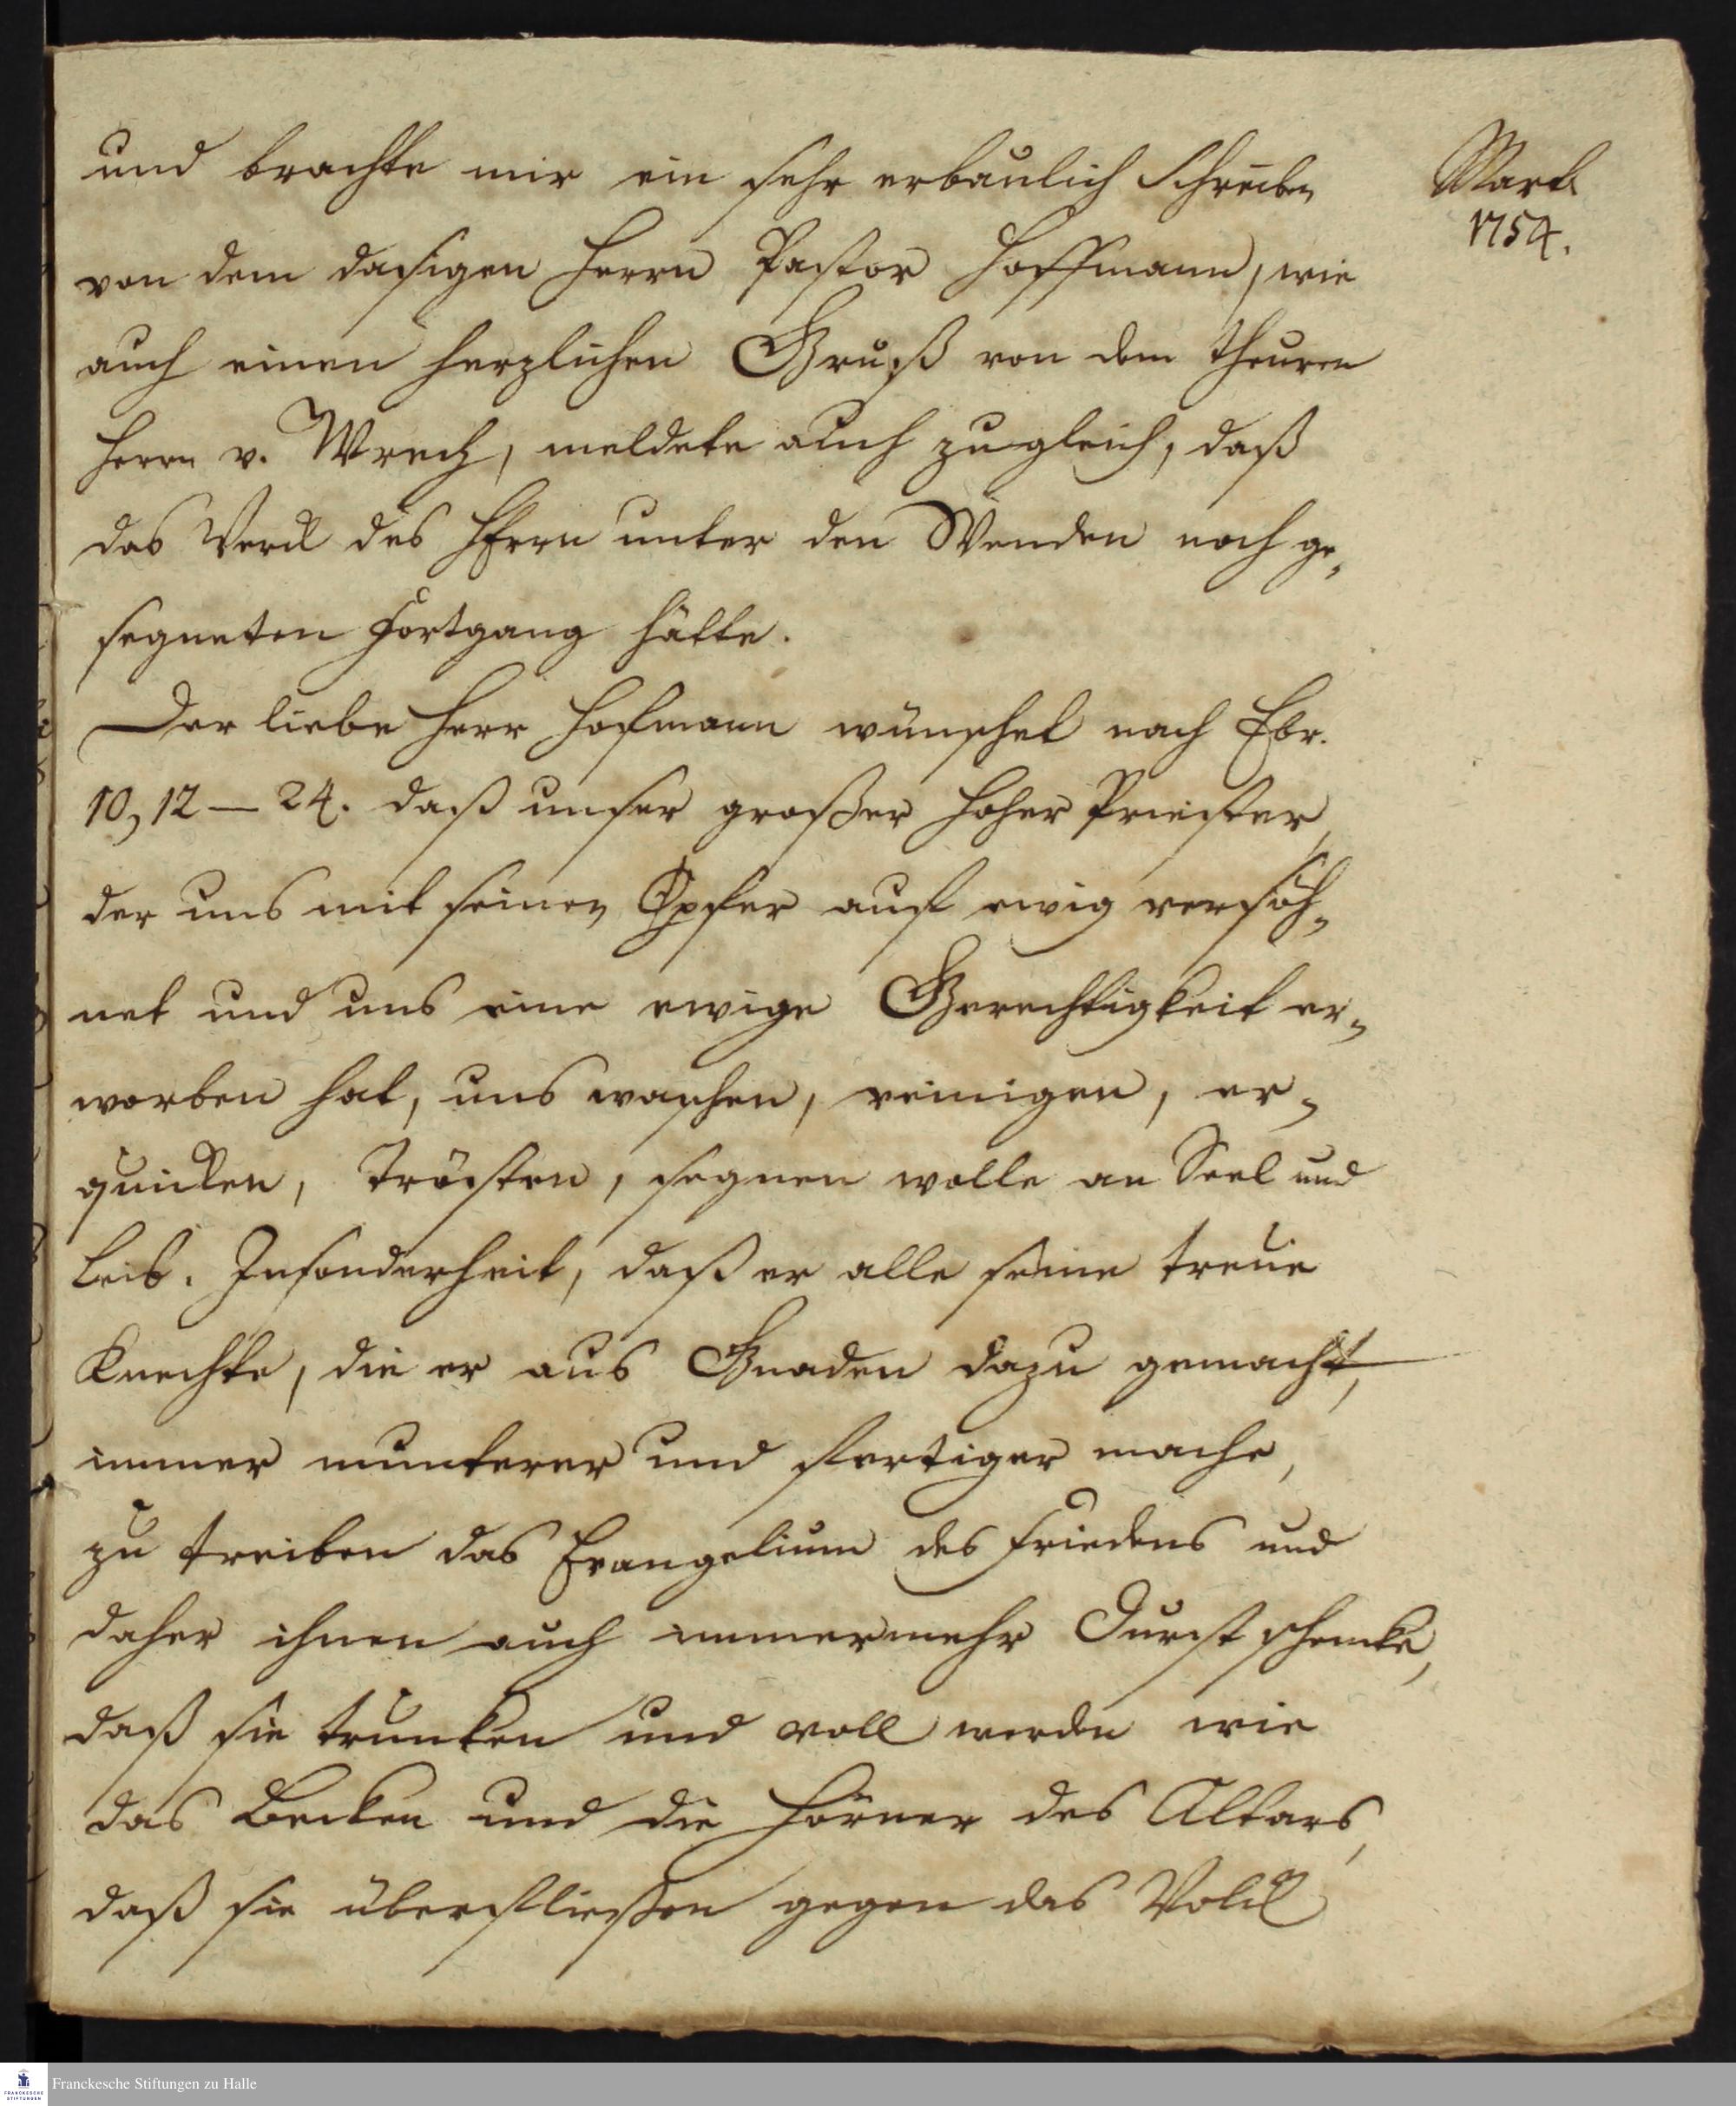 und brachte mir ein sehr erbaulich Schreiben
von dem dasigen Herrn Pastor Hoffmann, wie
auch einen herzlichen Gruß von dem theuren
Herrn v. Wrech, meldete auch zugleich, daß
das Werck des HErrn unter den Wenden noch ge„
segneten Fortgang hätte.
Der liebe Herr Hofmann wünschet nach Ebr.
10, 12 — 24. daß unser großer Hoher Priester,
der uns mit seinen Opfer auf ewig versöh„
net und uns eine ewige Gerechtigkeit er„
worben hat, uns waschen, reinigen, er„
quicken, trösten, segnen wolle an Seel und
Leib. Insonderheit, daß er alle seine treue
Knechte, die er aus Gnaden dazu gemacht,
immer munterer und fertiger mache,
zu treiben das Evangelium des Friedens und
daher ihnen auch immermehr Durst schencke,
daß sie trunken und voll werden wie
das Becken und die Hörner des Altars,
daß sie überfließen gegen das Volck
Mart.
1754.
FRANCKESCHE STIFTUNGEN
Franckesche Stiftungen zu Halle